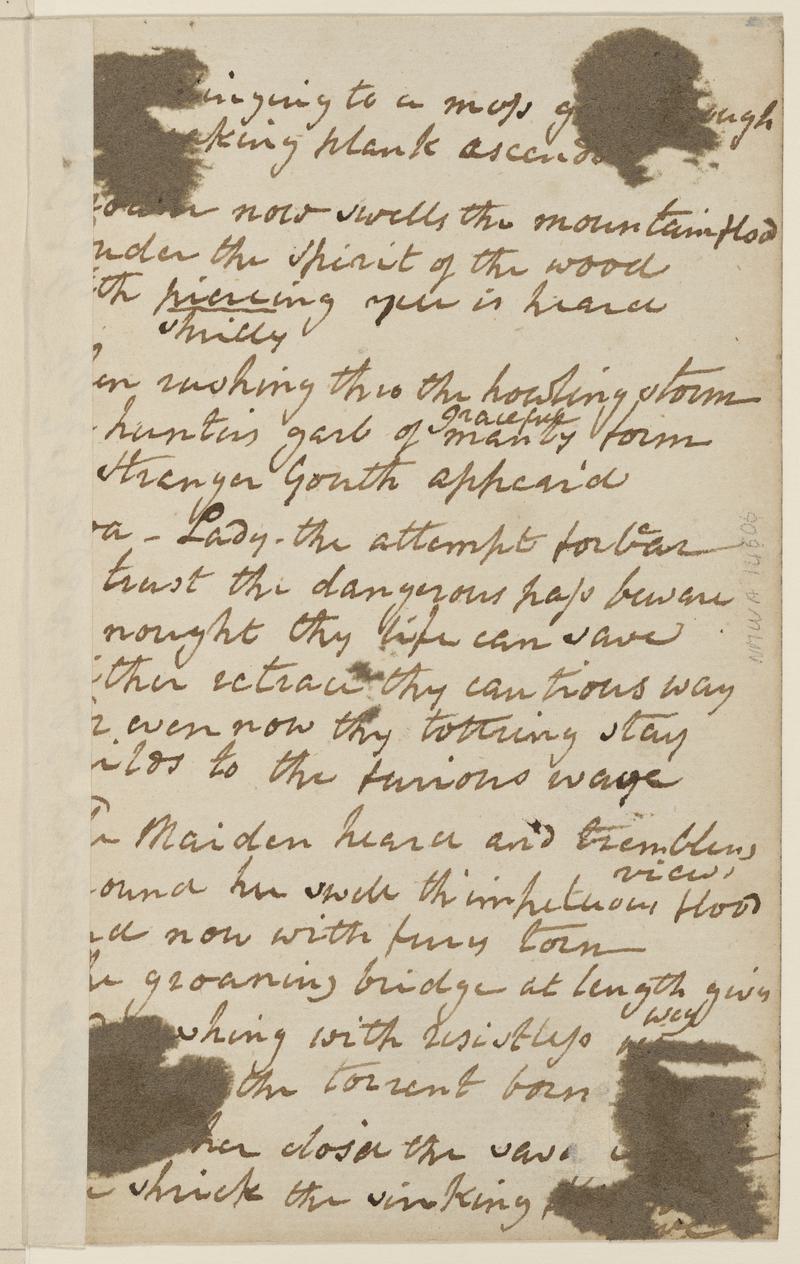 inging to a moss g ough
king plank ascend
now swells the mountain flood
nder the spirit of the wood
th piercing yell is heard
shrilly
en rushing thro the howling storm
graceful
hunters garb of manly form
stranger Youth appear'd
va - Lady - the attempt forbear
trust the dangerous pass beware
nought thy life can save
ither retrace thy cautious way
r even now thy tottring stay
ilds to the furious wave
e Maiden heard and trembling
views
ound her swell th'impetuous flood
nd now with fury torn
he groaning bridge at length givs
way
shing with resistless
the torrent born
her clos'd the sava
shriek the sinking
NMW A 14606